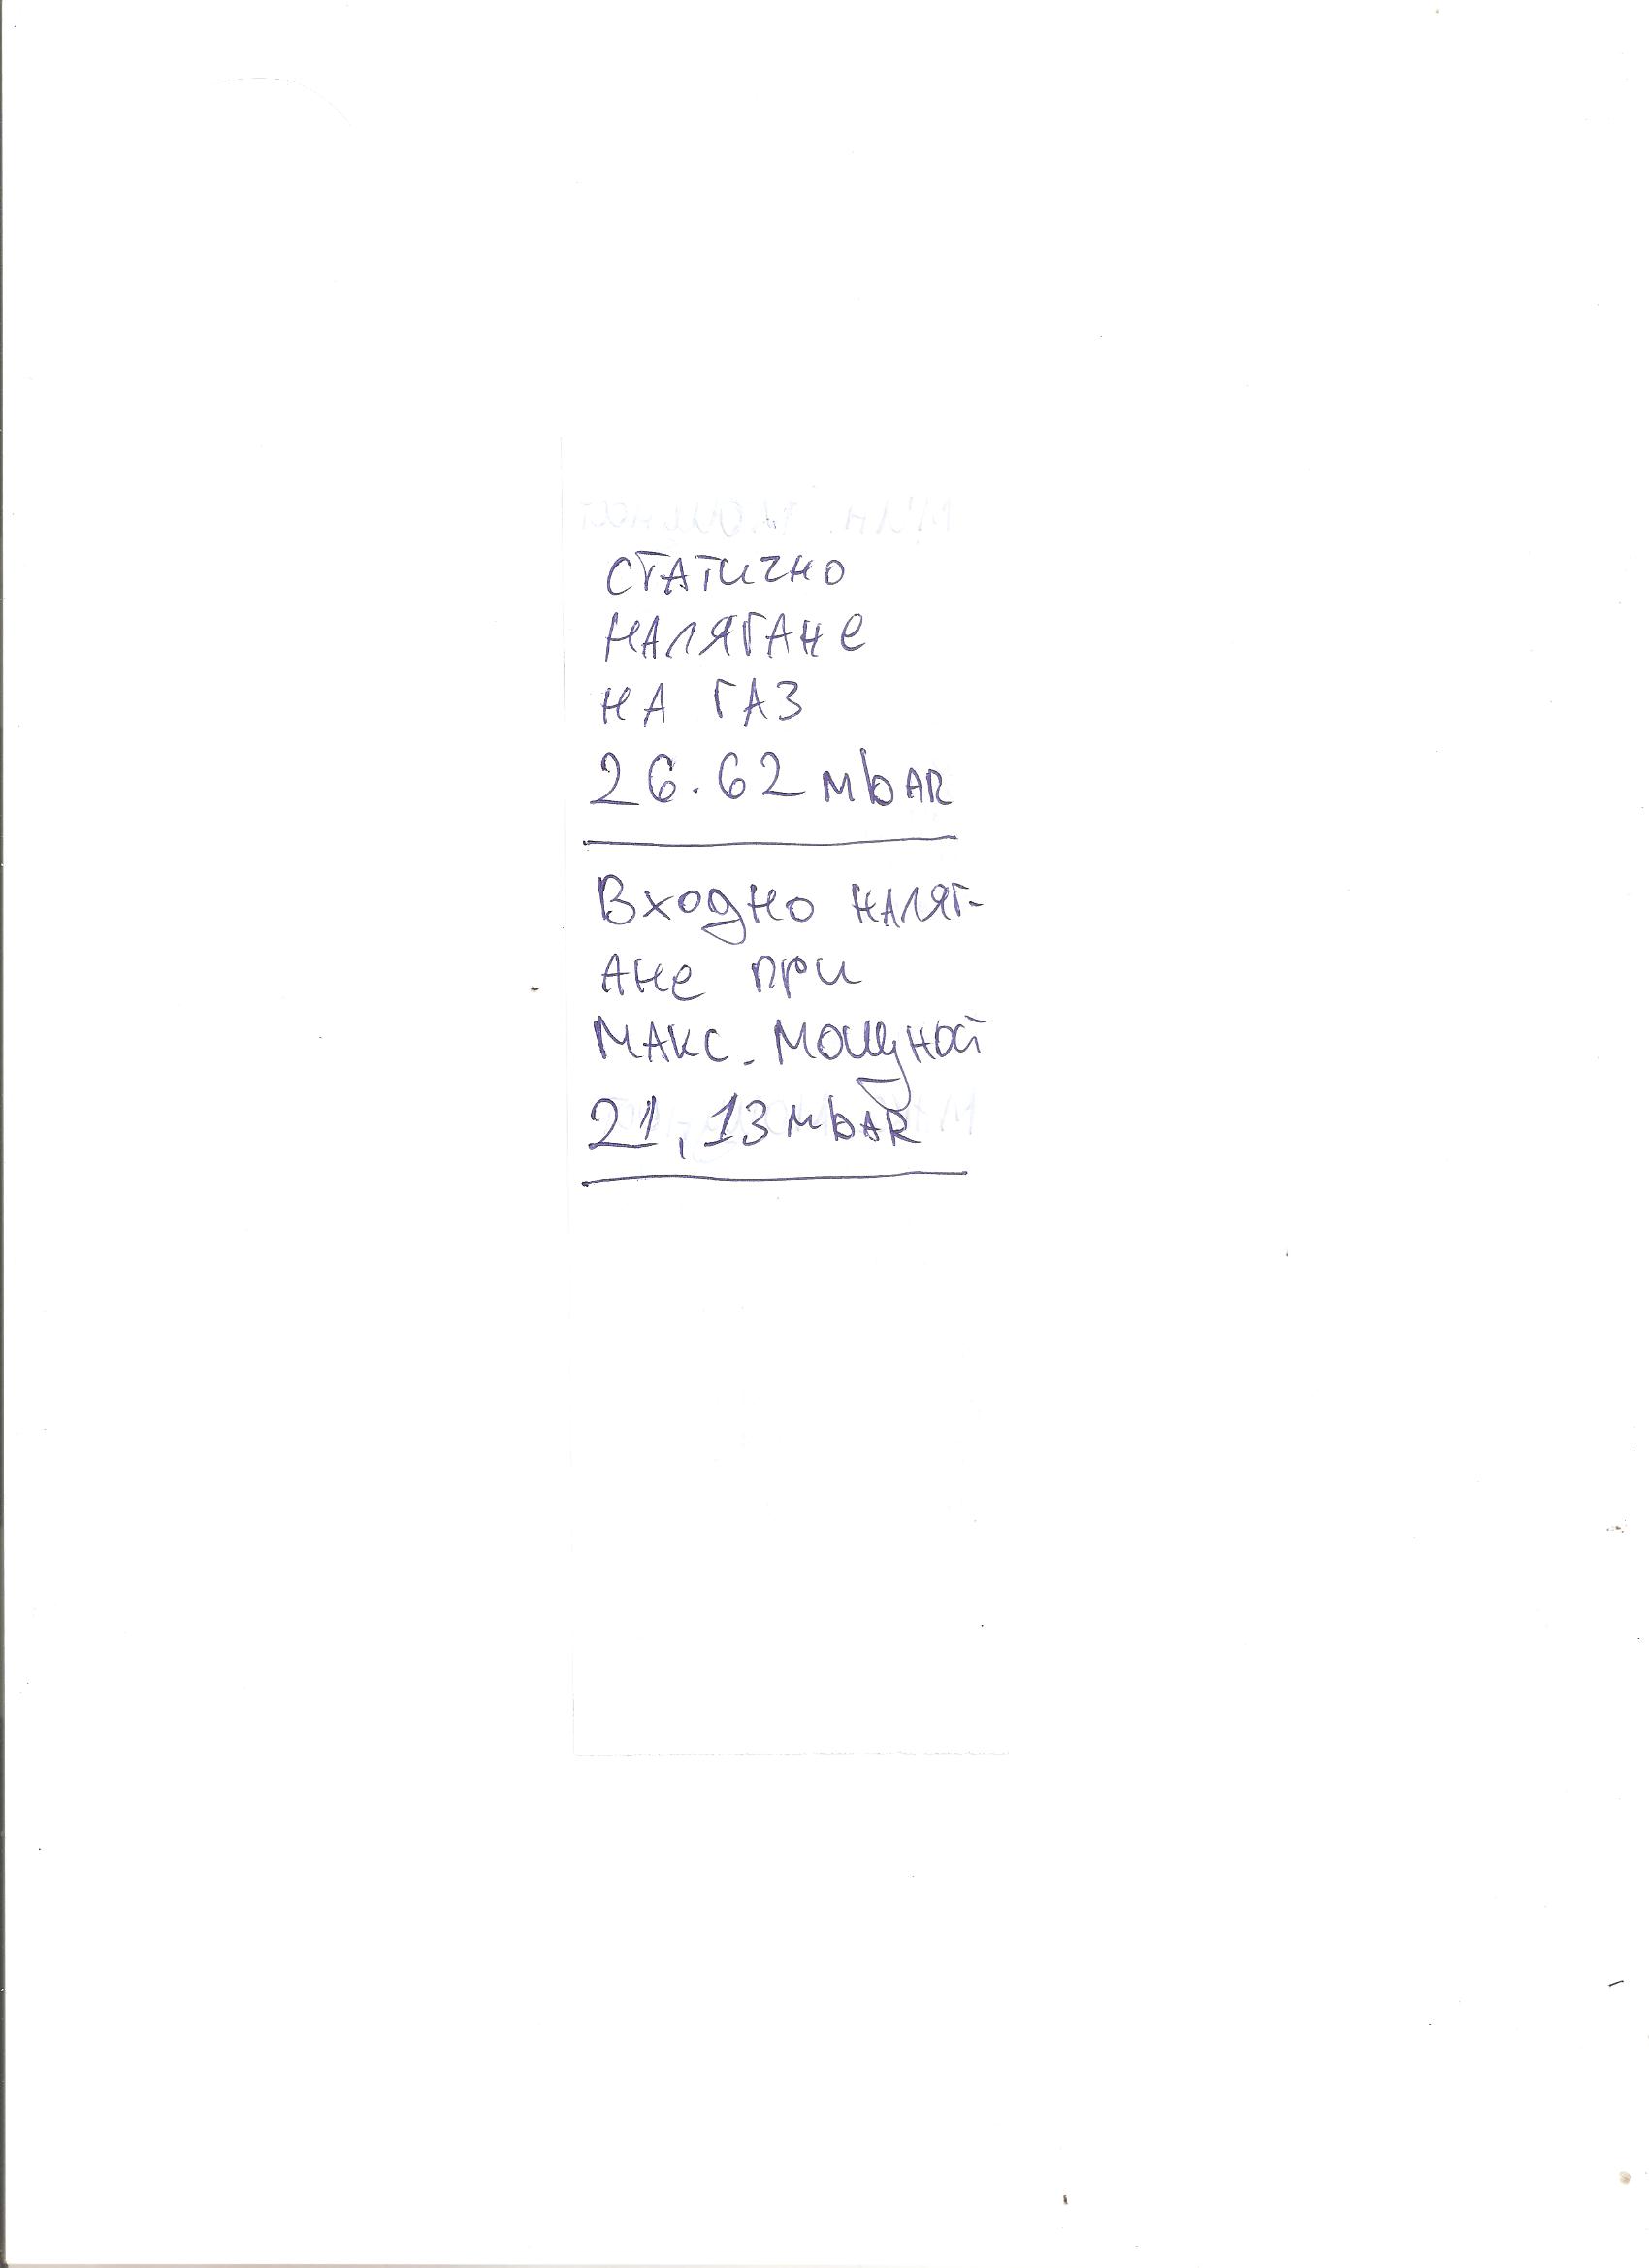 СТАТИЧНО
НАЛЯГАНЕ
НА ГАЗ
26.62 мbAR
Входно НАЛЯГ-
АНе при
МАКС. Мощност
21,13 мbAR